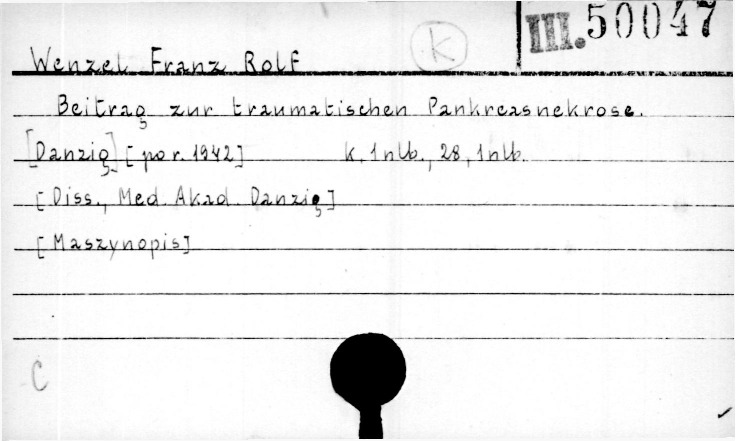 III. 50047
k
Wenzel Franz Rolf
Beitrag zur traumatischen Pankreasnekrose.
[Danzig] [por. 1942] k. 1 nlb., 28, 1 nlb.
[Diss., Med. Akad. Danzig]
[Maszynopis]
C